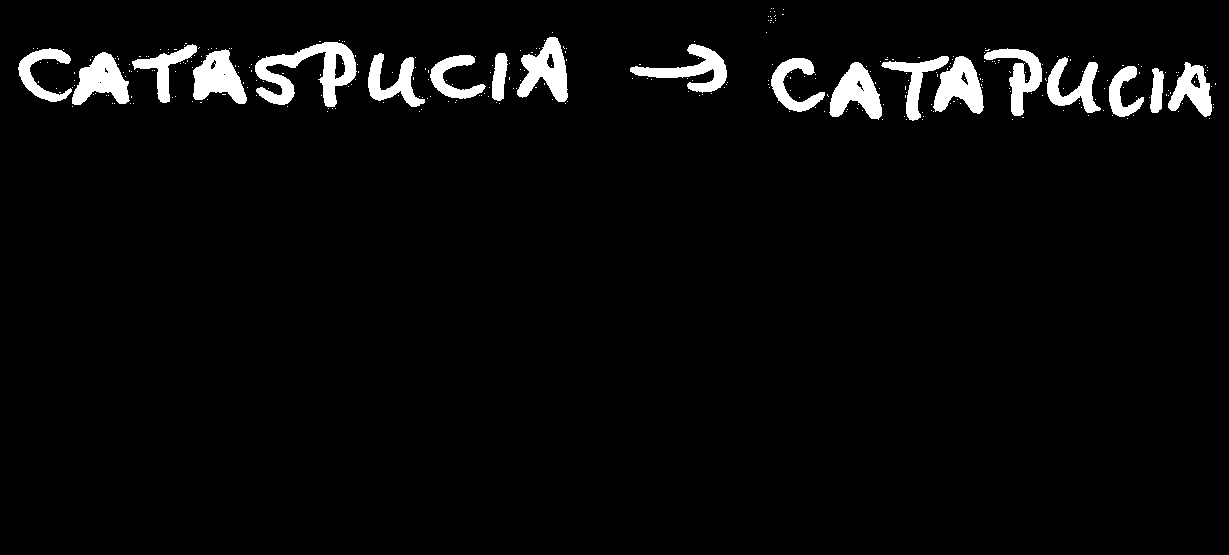 CATASPUCIA → CATAPUCIA